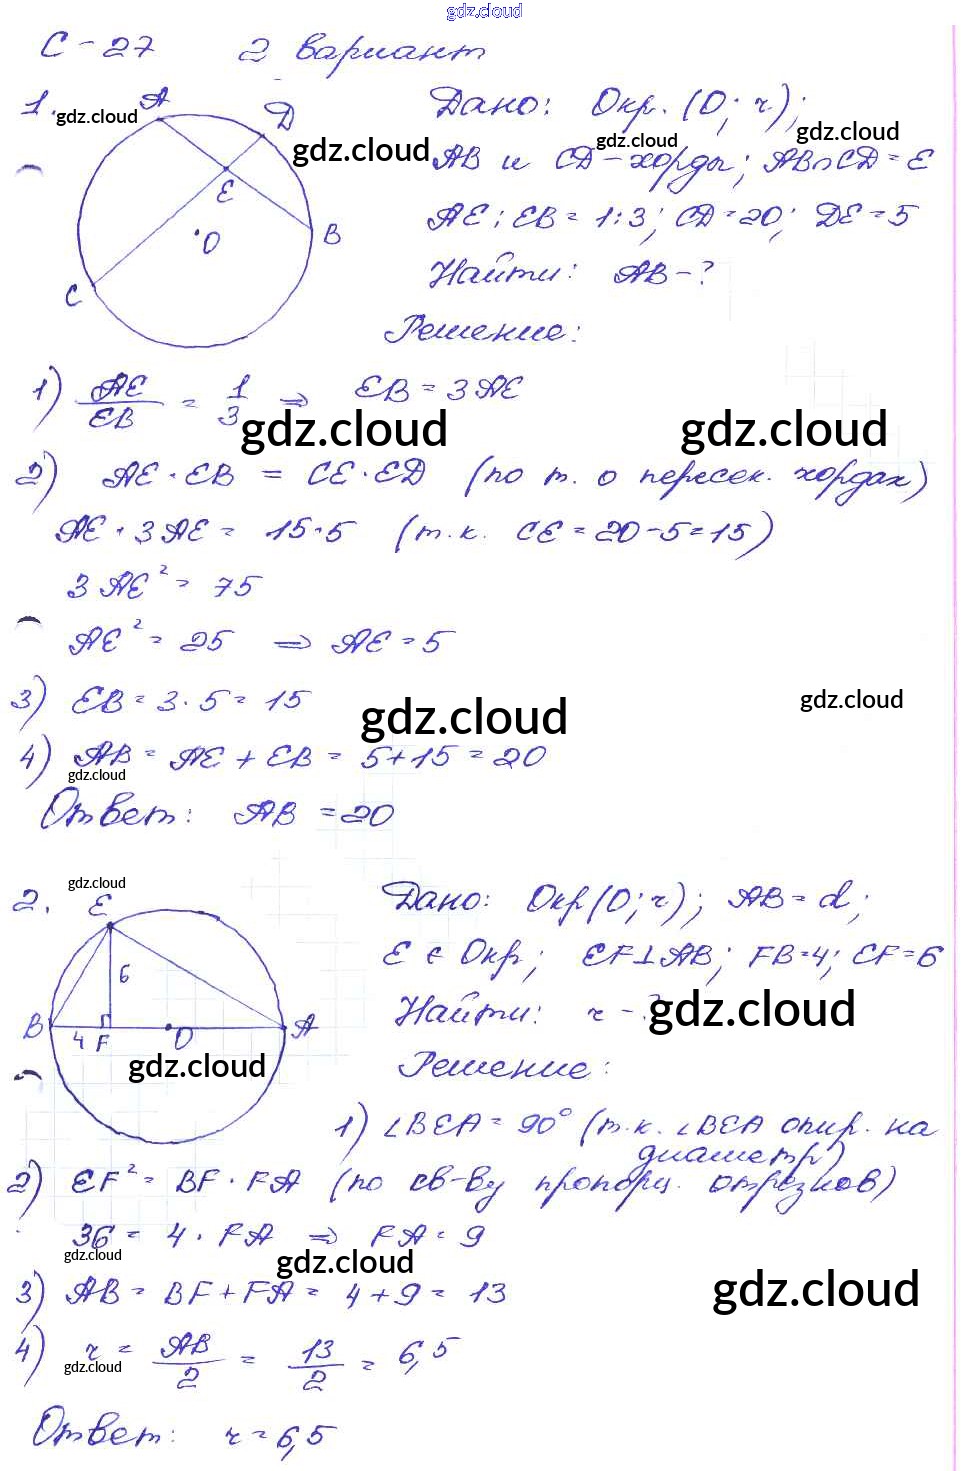 gdz.cloud
С-27 2 вариант
1. A D
gdz.cloud gdz.cloud
E
O B
C
Дано: Окр. (O; r);
gdz.cloud gdz.cloud
AB и CD - хорды; AB∩CD = E
AE : EB = 1:3; CD = 20; DE = 5
Найти: AB - ?
Решение:
1) AE/EB = 1/3 ⇒ EB = 3AE
gdz.cloud gdz.cloud
2) AE · EB = CE · ED (по т. о пересек. хордах)
AE · 3AE = 15·5 (т.к. CE = 20-5=15)
3AE² = 75
AE² = 25 ⇒ AE = 5
3) EB = 3·5 = 15
gdz.cloud gdz.cloud
4) AB = AE + EB = 5+15 = 20
gdz.cloud
Ответ: AB = 20
gdz.cloud
2. E
6
B 4 F O A
gdz.cloud
Дано: Окр(O; r); AB = d;
E ∈ Окр; EF⊥AB; FB=4; EF=6
Найти: r - ?
gdz.cloud
Решение:
1) ∠BEA = 90° (т.к. ∠BEA опир. на
диаметр)
2) EF² = BF · FA (по св-ву пропорц. отрезков)
36 = 4 · FA ⇒ FA = 9
gdz.cloud gdz.cloud
3) AB = BF + FA = 4 + 9 = 13
gdz.cloud
4) r = AB/2 = 13/2 = 6,5
gdz.cloud
Ответ: r = 6,5